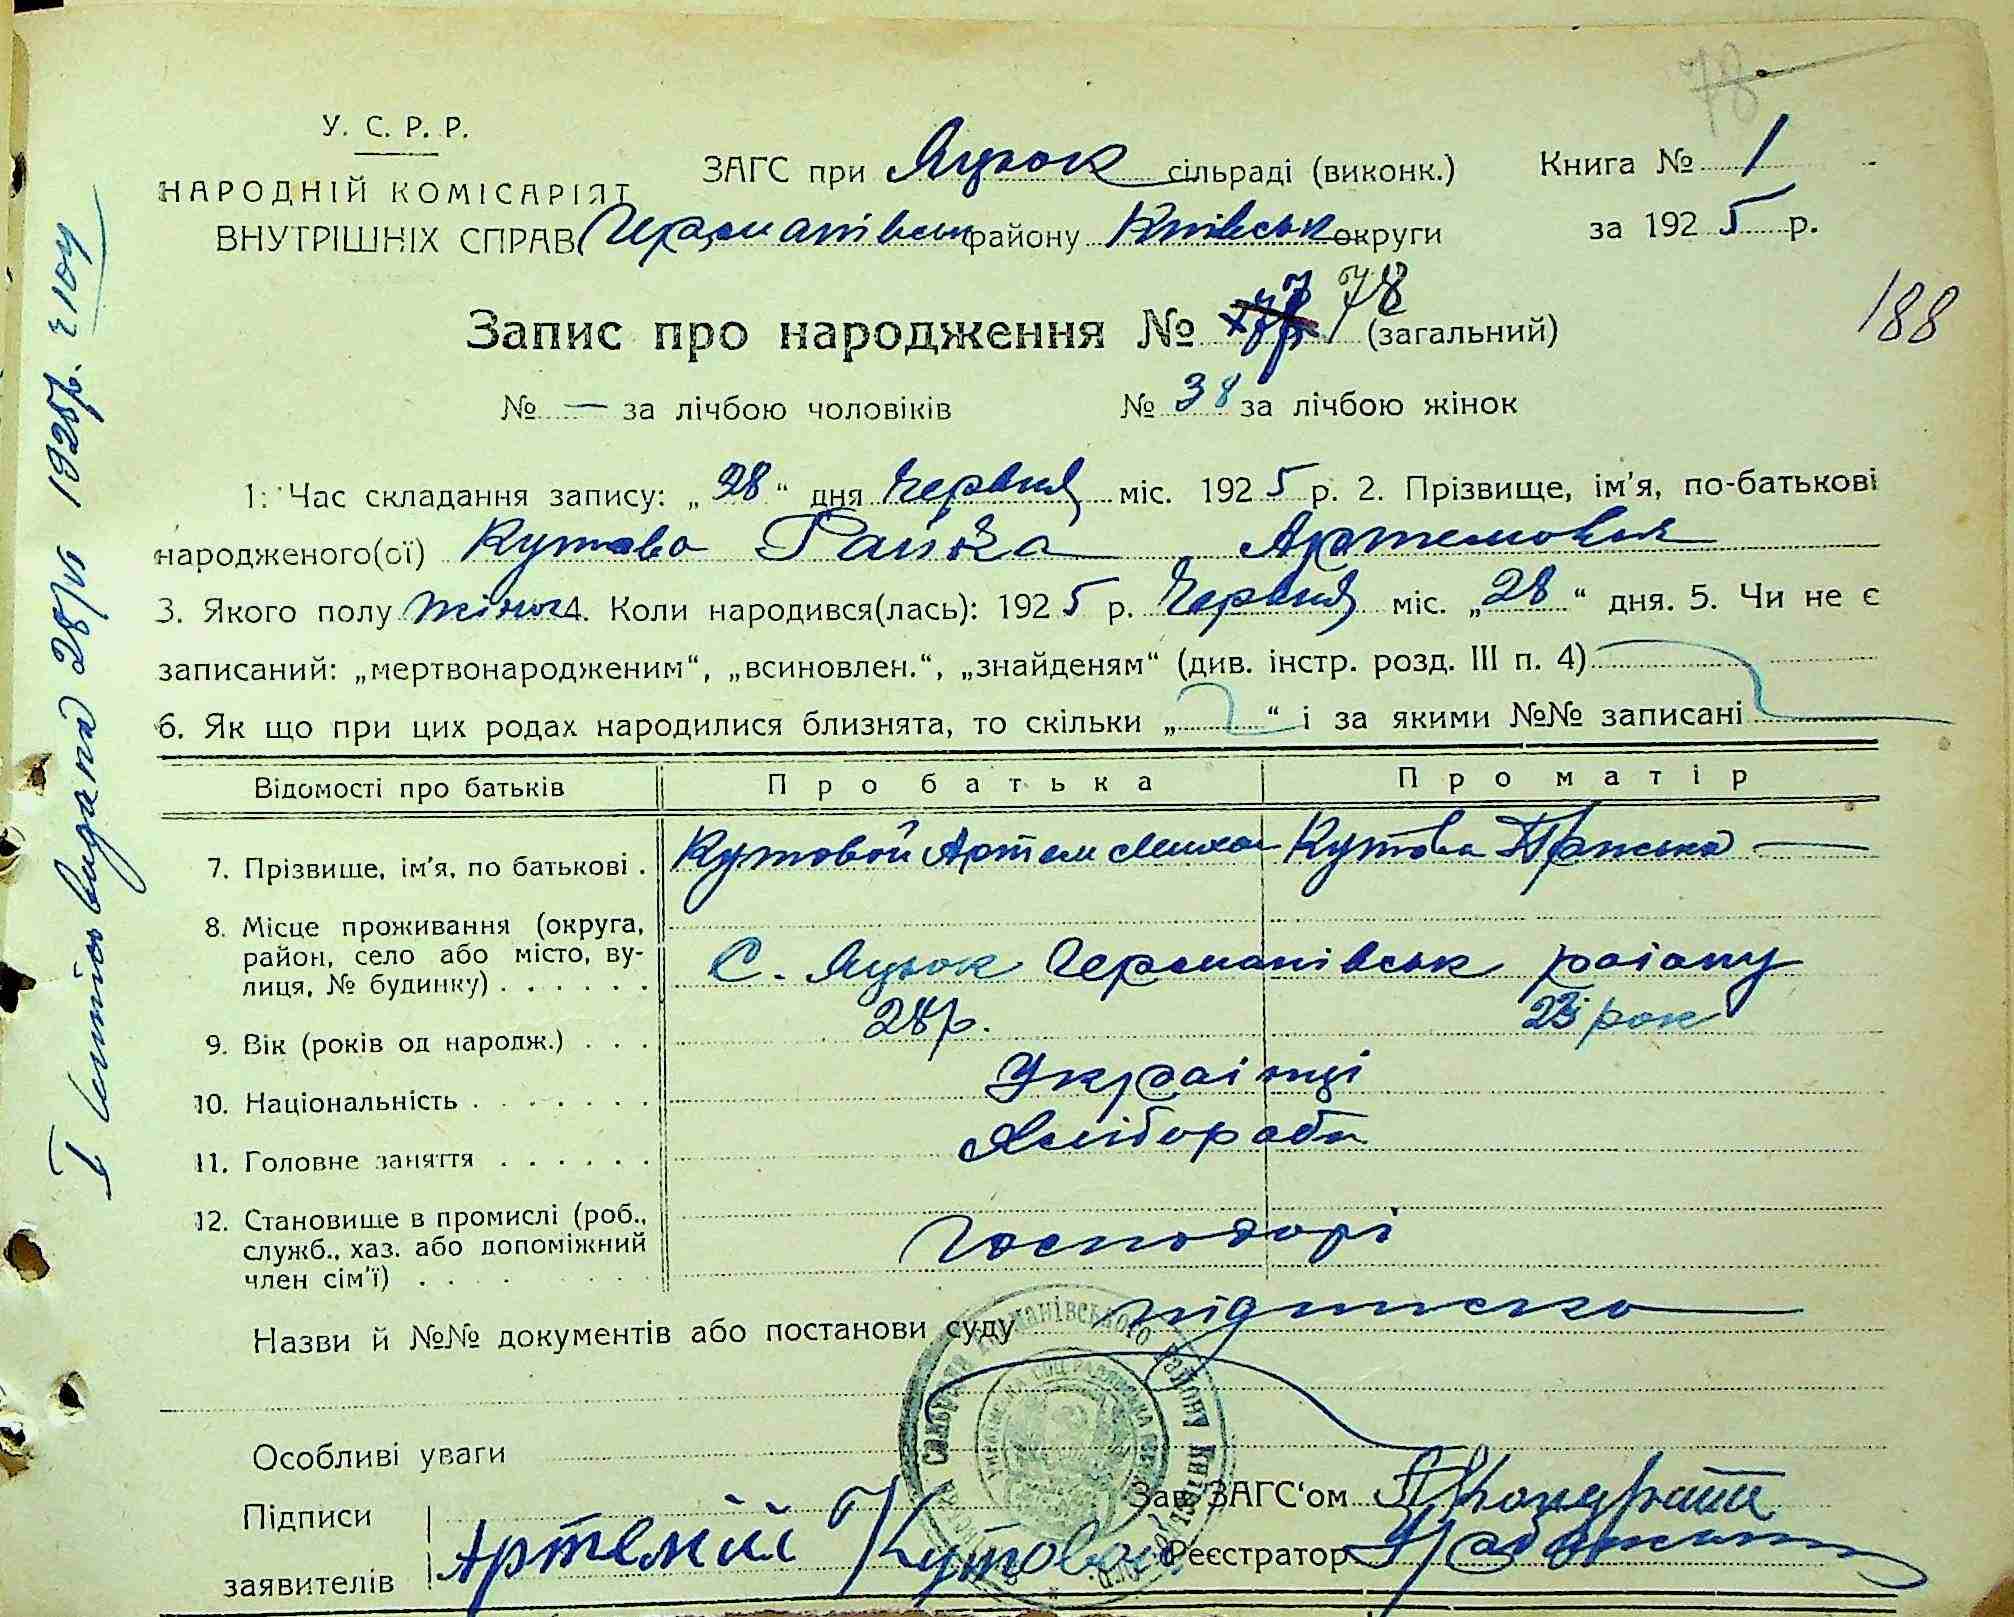 78
У. С. Р. Р.
НАРОДНІЙ КОМІСАРІЯТ
ВНУТРІШНІХ СПРАВ
ЗАГС при Яцьок сільраді (виконк.)
Германівськ району Київськ округи
Книга № 1
за 1925 р.
Запис про народження № 78 (загальний)
188
№ — за лічбою чоловіків № 38 за лічбою жінок
1. Час складання запису: „28“ дня Червня міс. 1925 р. 2. Прізвище, ім'я, по-батькові
народженого(ої) Кутова Артемовна
3. Якого полу жіноч 4. Коли народився(лась): 1925 р. Червня міс. „28“ дня. 5. Чи не є
записаний: „мертвонародженим“, „всиновлен.“, „знайденям“ (див. інстр. розд. III п. 4)
6. Як що при цих родах народилися близнята, то скільки „ “ і за якими №№ записані
Відомості про батьків Про батька Про матір
7. Прізвище, ім'я, по батькові . Кутовой Артем Миха Кутова —
8. Місце проживання (округа,
район, село або місто, ву-
лиця, № будинку) . . . . . . С. Яцьок Германівськ раіону
9. Вік (років од нородж.) . . . 28 р. 23 рок
10. Національність . . . . . . . Украінці
11. Головне заняття . . . . . . Хліборобн
12. Становище в промислі (роб.,
служб., хаз. або допоміжний
член сім'ї) . . . . . . . Господорі
Назви й №№ документів або постанови суду підписка
Особливі уваги
Підписи
заявителів Артемій Кутовой
Зав. ЗАГС'ом
Реєстратор
видана 28/VI 1925р. ч 104